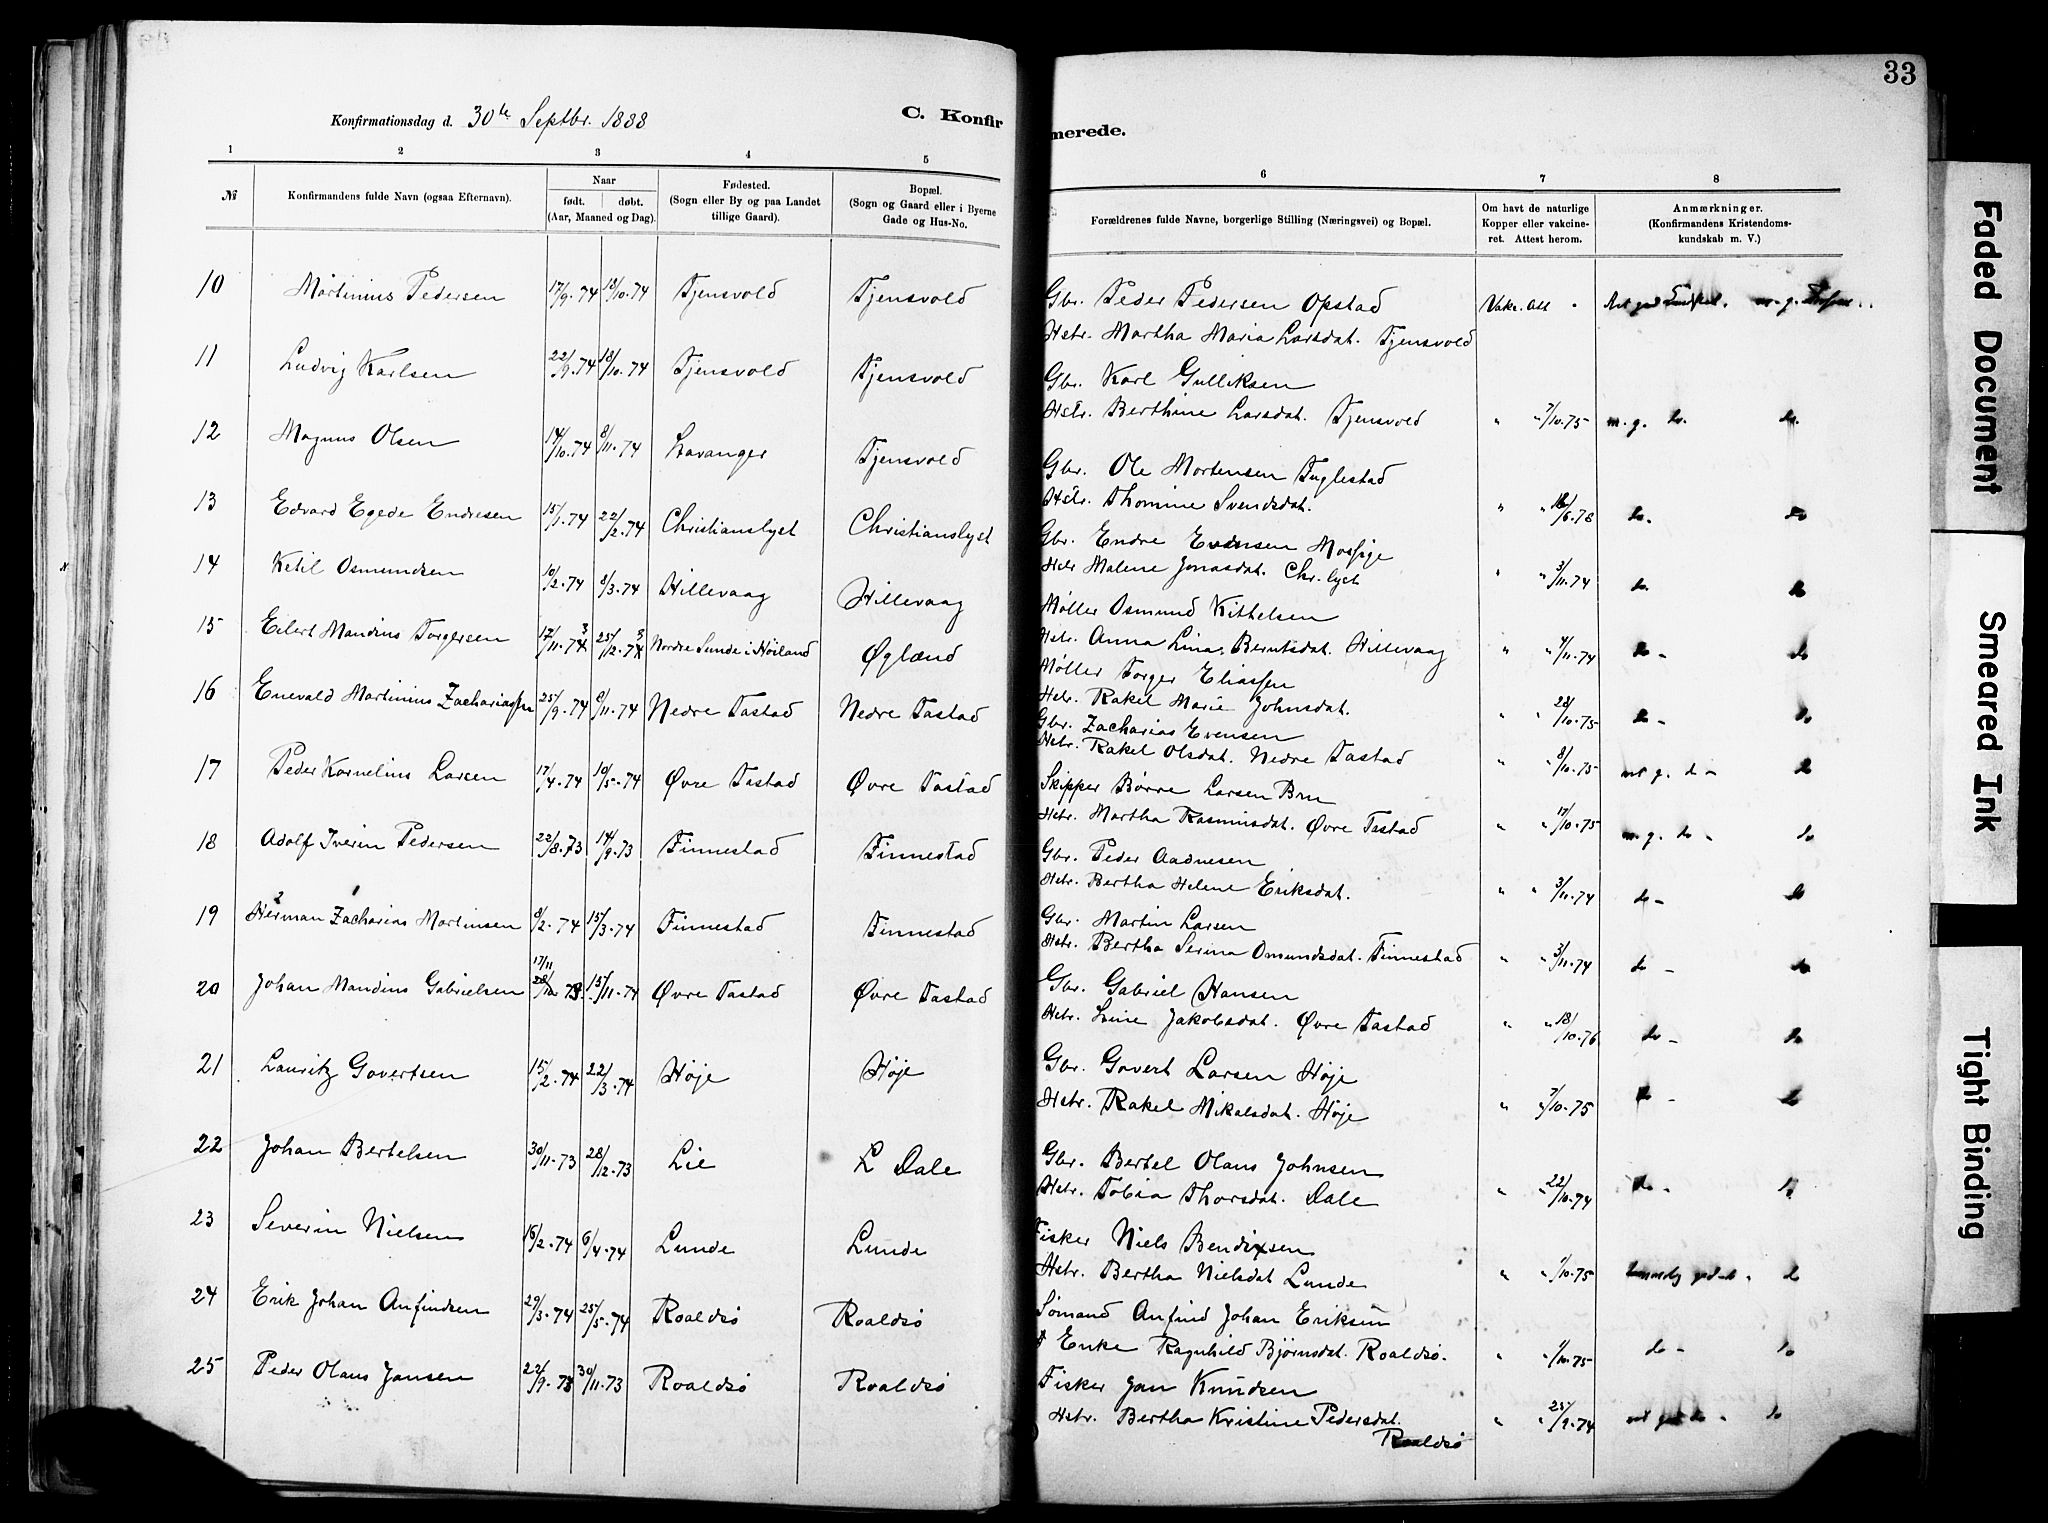 33
Konfirmationsdag d. 30te Septbr. 1888
C. Konfir
merede.
1 2 3 4 5 6 7 8
№
Konfirmandens fulde Navn (ogsaa Efternavn).
Naar
født. døbt.
(Aar, Maaned og Dag).
Fødested.
(Sogn eller By og paa Landet
tillige Gaard).
Bopæl.
(Sogn og Gaard eller i Byerne
Gade og Hus-No.
Forældrenes fulde Navne, borgerlige Stilling (Næringsvei) og Bopæl.
Om havt de naturlige
Kopper eller vakcine-
ret. Attest herom.
Anmærkninger.
(Konfirmandens Kristendoms-
kundskab m. V.)
10 Martinius Pedersen 17/9.74 18/10.74 Tjensvold Tjensvold Gbr. Peder Pedersen Opstad Vakc. Att
Hstr. Martha Maria Larsdat. Tjensvold
11 Ludvig Karlsen 22/9.74 18/10.74 Tjensvold Tjensvold Gbr. Karl Gulliksen
Hstr. Berthine Larsdat. Tjensvold " " 7/10.75 m. g. do. do.
12 Magnus Olsen 14/10.74 8/11.74 Lavanger Tjensvold Gbr. Ole Mortensen Fuglestad
Hstr. Thomine Svendsdat. " " 16/6.78 do. do
13 Edvard Egede Endresen 15/1.74 22/2.74 Christianslyst Christianslyst Gbr. Endre Evensen Mossige
Hstr Malene Jonasdat. Chr. lyst " " 3/11.74 do. do
14 Ketil Osmundsen 10/2.74 8/3.74 Hillevaag Hillevaag Møller Osmund Kittelsen
Hstr. Anna Lina Berntsdat. Hillevaag " " 4/11.74 do - do
15 Eilert Mandius Torgersen 17/11.73 25/12.73 Nordre Sunde i Høiland Øglænd Møller Torger Eliassen
Hstr. Rakel Marie Johnsdat. " " 28/10.75 do - do
16 Enevald Martinius Zachariassen 25/9.74 8/11.74 Nedre Tastad Nedre Tastad Gbr. Zacharias Evensen
Hstr. Rakel Olsdat. Nedre Tastad " " 8/10.75 mt g. do - do
17 Peder Kornelius Larsen 17/4.74 10/5.74 Øvre Tastad Øvre Tastad Skipper Børre Larsen Bru
Hstr. Martha Rasmusdat. Øvre Tastad " " 17/10.75 m. g. do - do
18 Adolf Iverin Pedersen 22/8.73 14/9.73 Finnestad Finnestad Gbr. Peder Aadnesen
Hstr. Bertha Helene Eriksdat. " " 3/11.74 do - do
19 Herman Zacharias Martinsen 8/2.74 15/3.74 Finnestad Finnestad Gbr. Martin Larsen
Hstr. Bertha Serina Omundsdat. Finnestad " " 3/11.74 do - do
20 Johan Mandius Gabrielsen 17/11 15/11.74 Øvre Tastad Øvre Tastad Gbr. Gabriel Hansen
Hstr. Line Jakobsdat. Øvre Tastad " " 18/10.76 do - do
21 Lauritz Govertsen 15/2.74 22/3.74 Høje Høje Gbr. Govert Larsen Høje
Hstr. Rakel Mikalsdat. Høje " " 7/10.75 do - do
22 Johan Bertelsen 30/11.73 28/12.73 Lie L Dale Gbr. Bertel Olaus Johnsen
Hstr. Tobia Thorsdat. Dale " " 22/10.74 do - do
23 Severin Nielsen 16/2.74 6/4.74 Lunde Lunde Fisker Niels Bendixsen
Hstr. Bertha Nielsdat Lunde " " 1/10.75 do
24 Erik Johan Anfindsen 29/3.74 25/5.74 Roaldsø Roaldsø Sømand Anfind Johan Eriksen
Enke Ragnhild Bjørnsdat. Roaldsø. " " 1/10.75 do - do
25 Peder Olaus Jansen 22/9.73 30/11.73 Roaldsø Roaldsø Fisker Jan Knudsen
Hstr. Bertha Kristine Pedersdat. " " 25/9.74 do
Roaldsø
Faded Document
Smeared Ink
Tight Binding